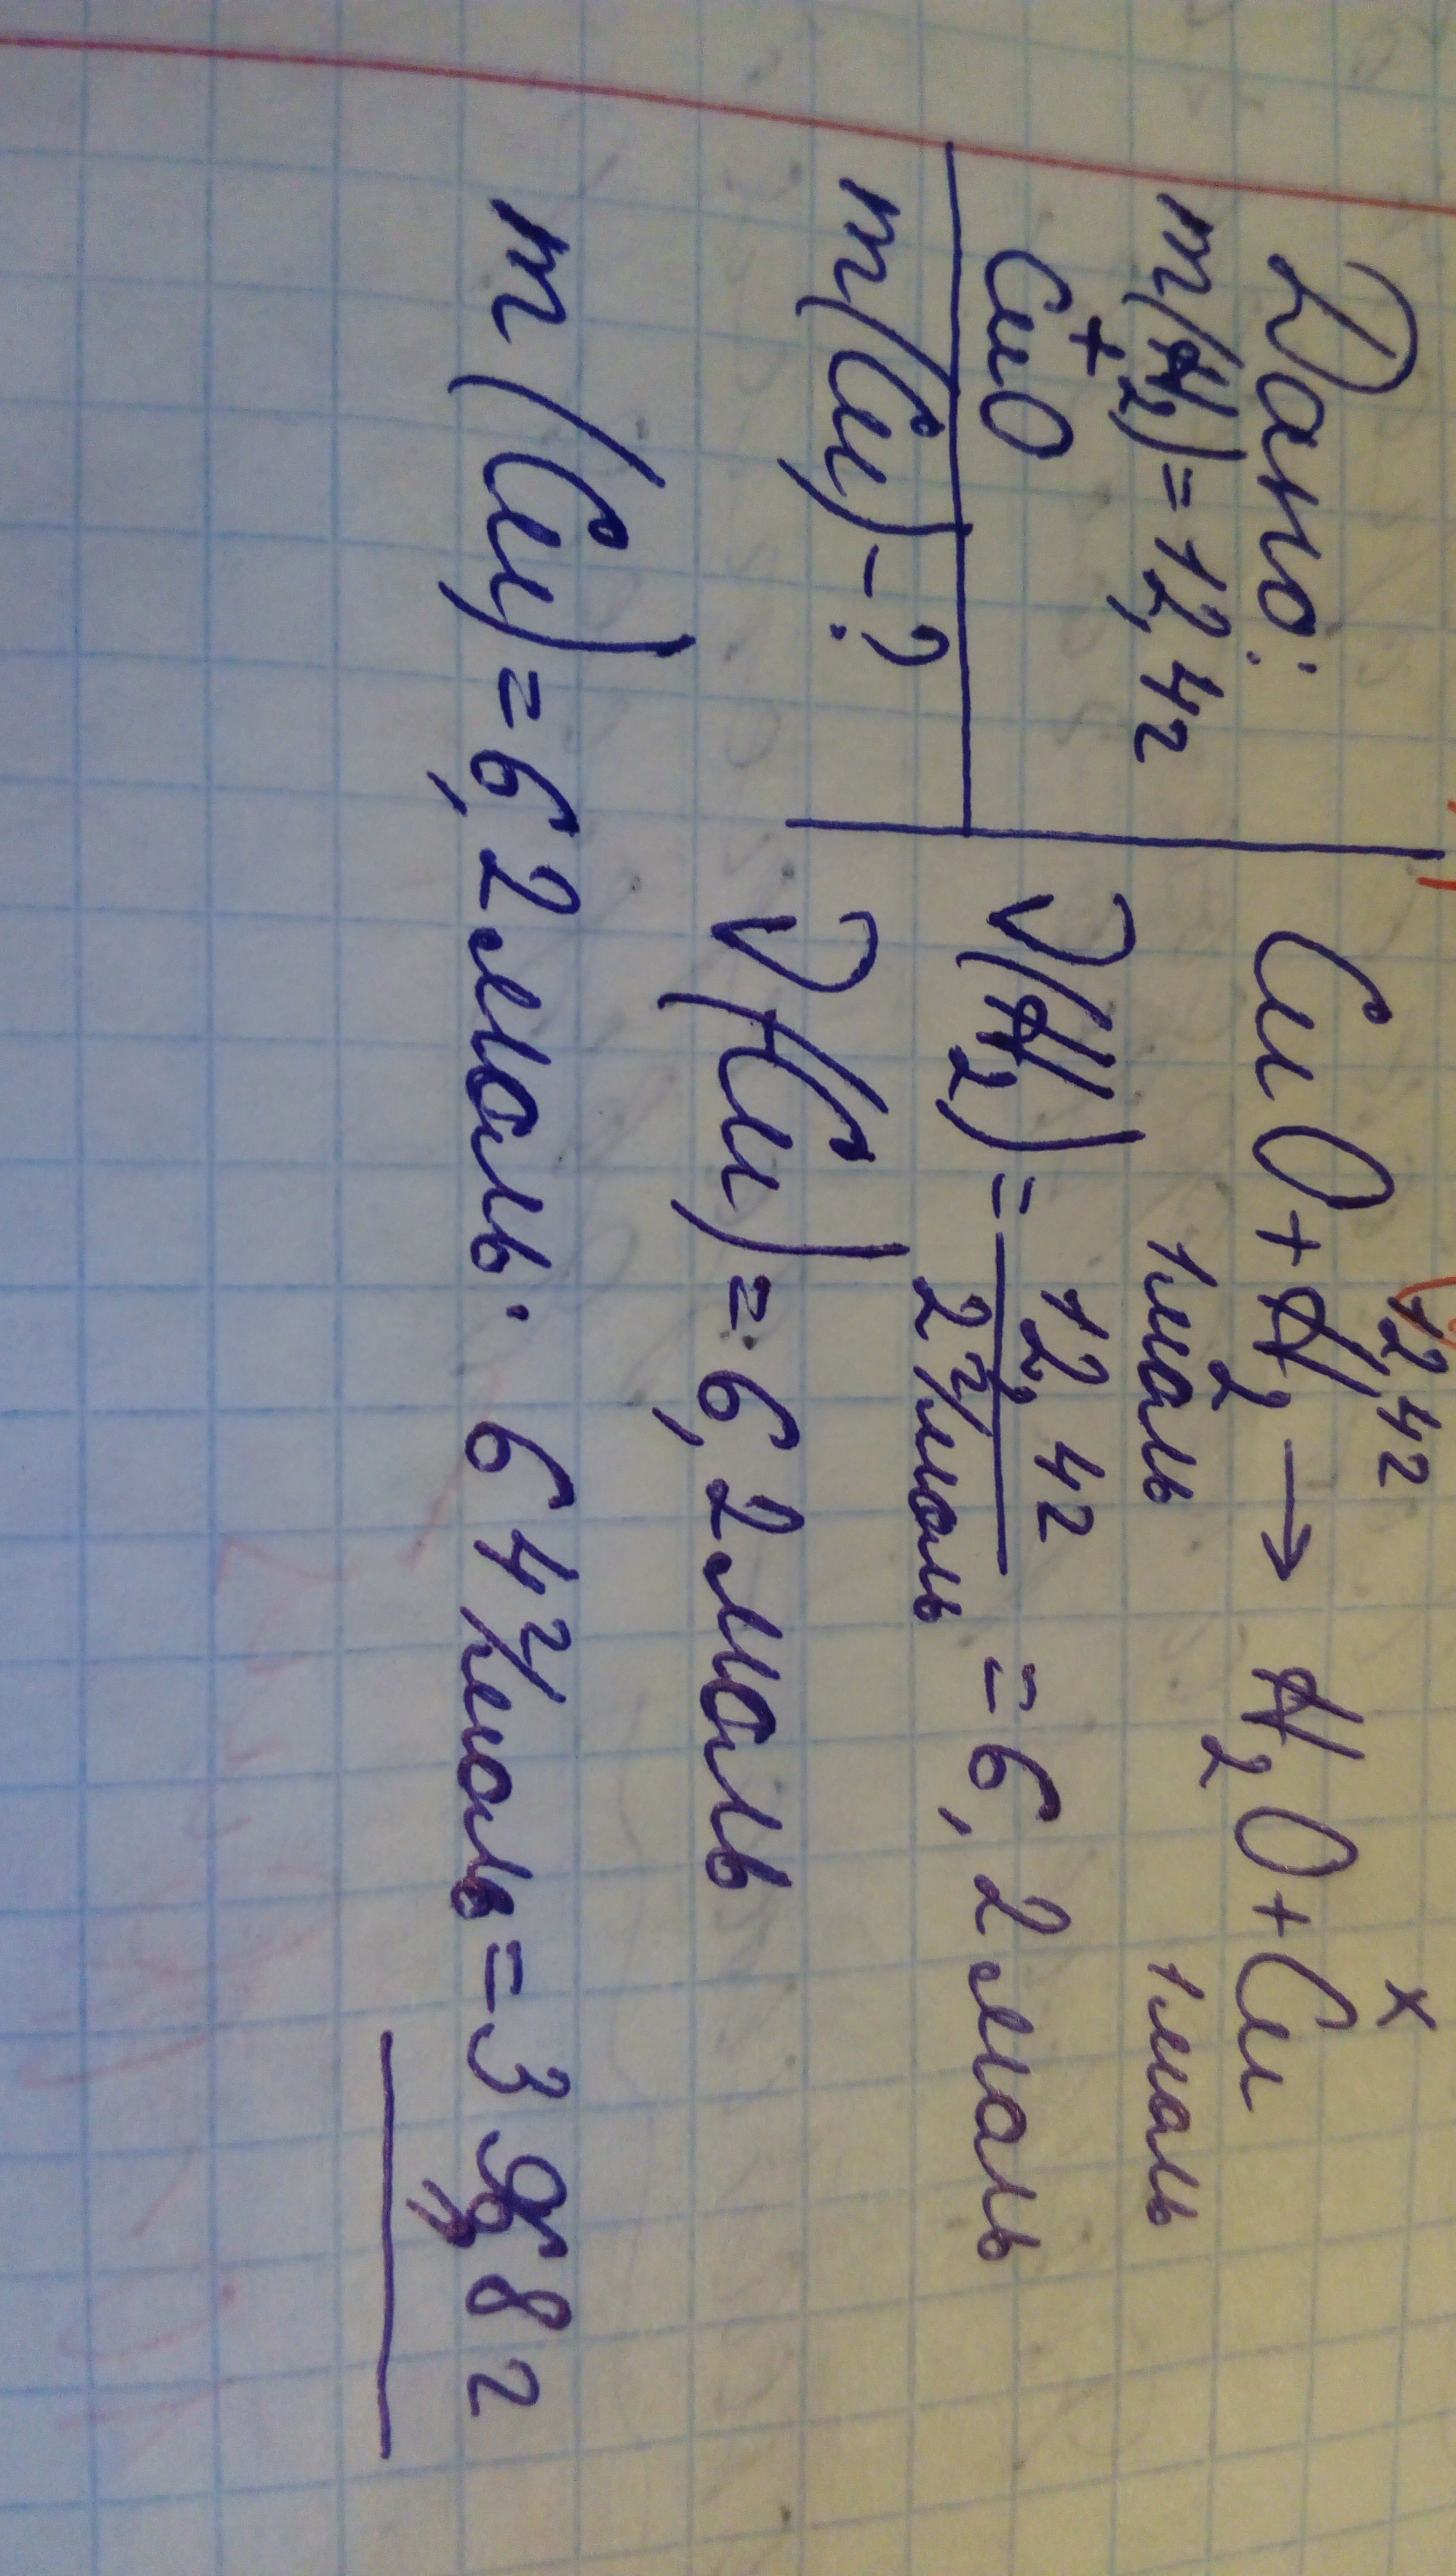 Дано:
m(H₂)=12,4г
+
CuO
m(Cu)-?
12,4г x
CuO+H₂→H₂O+Cu
1моль 1моль
ν(H₂)=12,4г/2г/моль=6,2моль
ν(Cu)=6,2моль
m(Cu)=6,2моль·64г/моль=396,8г